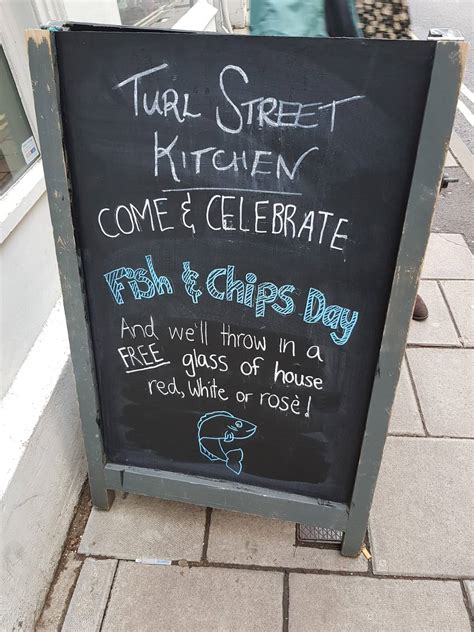 TURL STREET
KITCHEN
COME & CELEBRATE
Fish & Chips Day
And we'll throw in a
FREE glass of house
red, white or rosè!